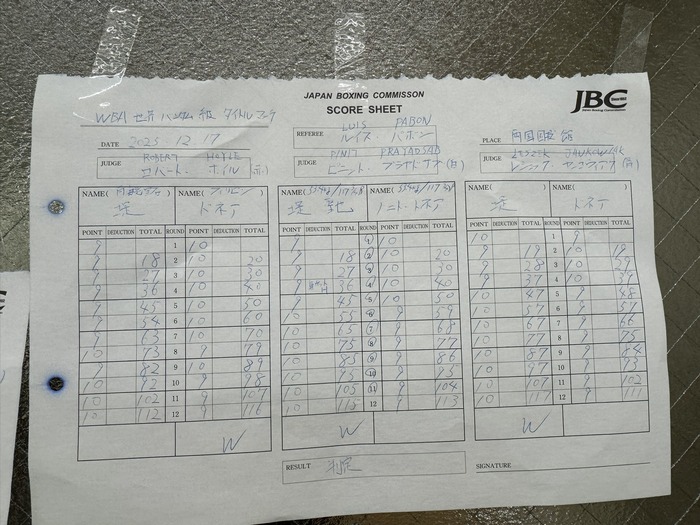 JAPAN BOXING COMMISSON
SCORE SHEET
JBC
WBA 世界バンタム級 タイトルマッチ
DATE 2025.12.17
REFEREE LUIS PABON
ルイス・パボン
PLACE 両国国技館
JUDGE ROBERT HOYLE
ロバート・ホイル (赤)
JUDGE PINIT PRAYADSAB
ピニット・プラヤドサブ (白)
JUDGE LESZEK JANKOWIAK
NAME( ) NAME(フィリピン) NAME( ) NAME( ) NAME( ) NAME( )
堤 ドネア 堤 聖也 ノニト・ドネア 堤 ドネア
POINT DEDUCTION TOTAL ROUND POINT DEDUCTION TOTAL POINT DEDUCTION TOTAL ROUND POINT DEDUCTION TOTAL POINT DEDUCTION TOTAL ROUND POINT DEDUCTION TOTAL
9 1 10 9 1 10 10 1 9
9 18 2 10 20 9 18 2 10 20 9 19 2 10 19
9 27 3 10 30 9 27 3 10 30 9 28 3 10 29
9 36 4 10 40 9 36 4 10 40 9 37 4 10 39
9 45 5 10 50 9 45 5 10 50 10 47 5 9 48
9 54 6 10 60 10 55 6 9 59 10 57 6 9 57
9 63 7 10 70 10 65 7 9 68 10 67 7 9 66
10 73 8 9 79 10 75 8 9 77 10 77 8 9 75
9 82 9 10 89 10 85 9 9 86 10 87 9 9 84
10 92 10 9 98 10 95 10 9 95 10 97 10 9 93
10 102 11 9 107 10 105 11 9 104 10 107 11 9 102
10 112 12 9 116 10 115 12 9 113 10 117 12 9 111
W W W
RESULT 判定
SIGNATURE